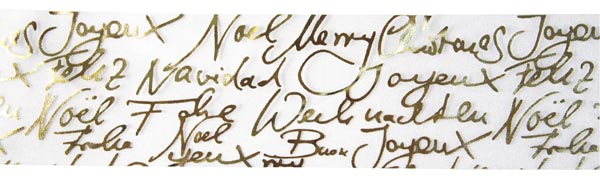 Joyeux Noël Merry Christmas Joyeu
x Feliz Navidad Joyeux Feliz
Noël Frohe Weihnachten Noël
Frohe Noël Buon Joyeux
yeux